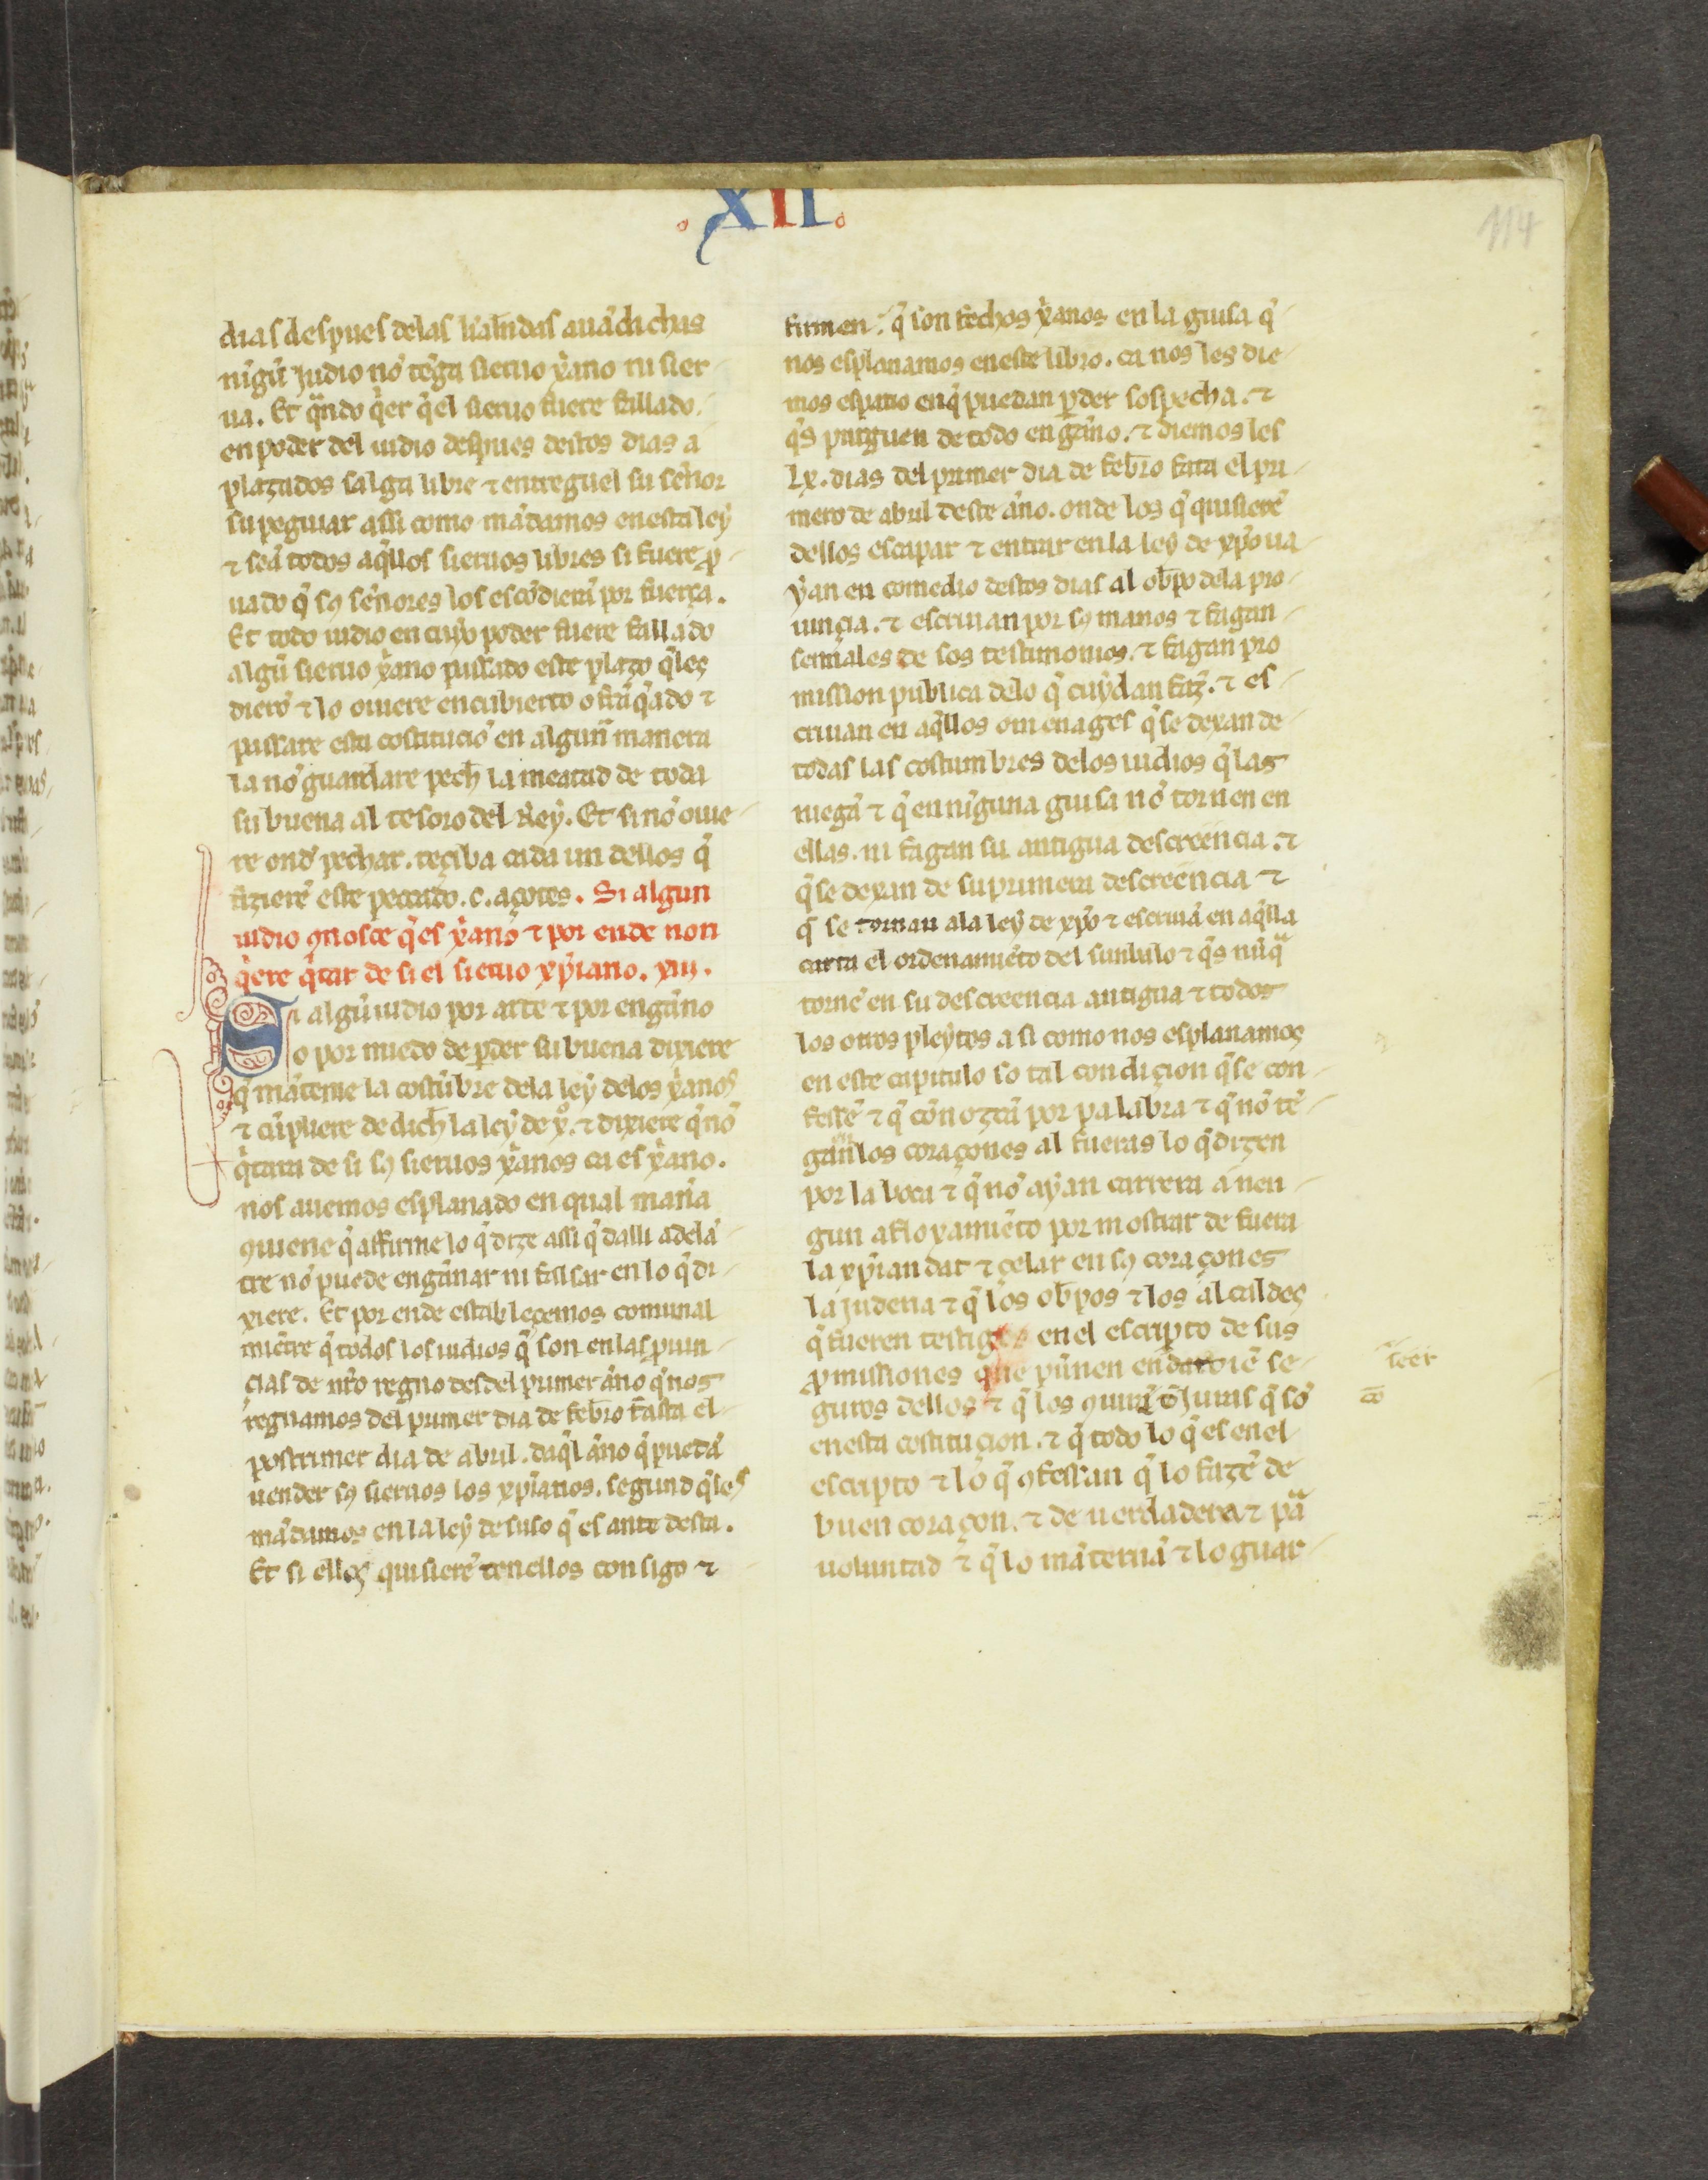 .XII.
114
dias despues delas kalendas auãdichas
nĩgũ judio nõ tẽga sieruo xp̃ano ni sier
ua. Et q̃ndo q̃er q̃el sieruo fuere fallado
en poder del iudio despues destos dias a
plazados salga libre ⁊ entreguel su señor
su peguiar assi como mãdamos enesta ley
⁊ seã todos aq̃llos sieruos libres si fuere ꝓ
uado q̃ sꝯ señores los escõdierũ por fuerça.
Et todo iudio en cuyo poder fuere fallado
algũ sieruo xp̃ano passado este plazo q̃les
dierõ ⁊ lo ouiere encubierto o frãq̃ado ⁊
passare esta costituciõ en algun̄ manera
la nõ guardare pech̃ la meatad de toda
su buena al tesoro del Rey. Et si nõ ouie
re ond̃ pechar. reçiba cada un dellos q̃
fizierẽ este peccado .c. açotes. Si algun
iudio ꝯnosce q̃es xp̃ano ⁊ por ende non
q̃ere q̃tar de si el sieruo xp̃iano. xiii.
Si algũ iudio por arte ⁊ por engaño
o por miedo de ꝑder su buena dixiere
q̃ mãtene la costũbre dela ley delos xp̃anos
⁊ cũpliere de dich̃ la ley de xp̃o. ⁊ dixiere q̃ nõ
q̃tara de si sꝯ sieruos xp̃anos ca es xp̃ano.
nos auemos esplanado en qual man̄a
ꝯuiene q̃ affirme lo q̃ dize assi q̃ dalli adelã
tre nõ puede engañar ni falssar en lo q̃ di
xiere. Et por ende establecemos comunal
miẽtre q̃ todos los iudios q̃ son enlas ꝓuin
cias de nr̃o regno desdel primer año q̃ nos
regnamos del primer dia de febr̃o fasta el
postrimer dia de abril. daq̃l año q̃ puedã
uender sꝯ sieruos los xp̃ianos. segund q̃les
mãdamos en la ley de suso q̃ es ante desta.
Et si ellos quisierẽ tenellos consigo ⁊
firmen. q̃ son fechos xp̃anos en la guisa q̃
nos esplanamos eneste libro. ca nos les die
mos espacio enq̃ puedan ꝑder sospecha. ⁊
q̃s purguen de todo engaño. ⁊ diemos les
lx. dias del primer dia de febr̃o fata el pri
mero de abril deste año. onde los q̃ quisierẽ
dellos escapar ⁊ entrar en la ley de xp̃o ua
yan en comedio destos dias al obp̃o dela pro
uinçia. ⁊ escriuan por sꝯ manos ⁊ fagan
sennales de sos testimonios. ⁊ fagan pro
mission publica delo q̃ cuydan faz̃. ⁊ es
criuan en aq̃llos omenages q̃ se dexan de
todas las costumbres delos iudios q̃ las
niegã ⁊ q̃ en nĩguna guisa nõ tornen en
ellas. ni fagan su antigua descreencia. ⁊
q̃ se dexan de su primera descreencia ⁊
q̃ se tornan ala ley de xp̃o ⁊ escriuã en aq̃lla
carta el ordenamiẽto del simbolo ⁊ q̃s nũq̃
tornẽ en su descreencia antigua ⁊ todos
los otros pleytos asi como nos esplanamos
en este capitulo so tal condiçion q̃ se con
fessẽ ⁊ q̃ conozcã por palabra ⁊ q̃ nõ tẽ
gan en los coraçones al fueras lo q̃ dizen
por la boca ⁊ q̃ nõ ayan carrera a nen
gun afloxamiẽto por mostrar de fuera
la xp̃iandat ⁊ çelar en sꝯ coraçones
la judena ⁊ q̃ los obp̃os ⁊ los alcaldes
q̃ fueren testigos en el escripto de sus
ꝓmissiones que punen en seer
guros dellos ⁊ q̃ los q̃ sõ
enesta costituçion. ⁊ q̃ todo lo q̃ es en el
escripto ⁊ lo q̃ ꝯfessan q̃ lo fazẽ de
buen coraçon. ⁊ de uerdadera ⁊ pã
uoluntad ⁊ q̃ lo mãternã ⁊ lo guar
seer
co